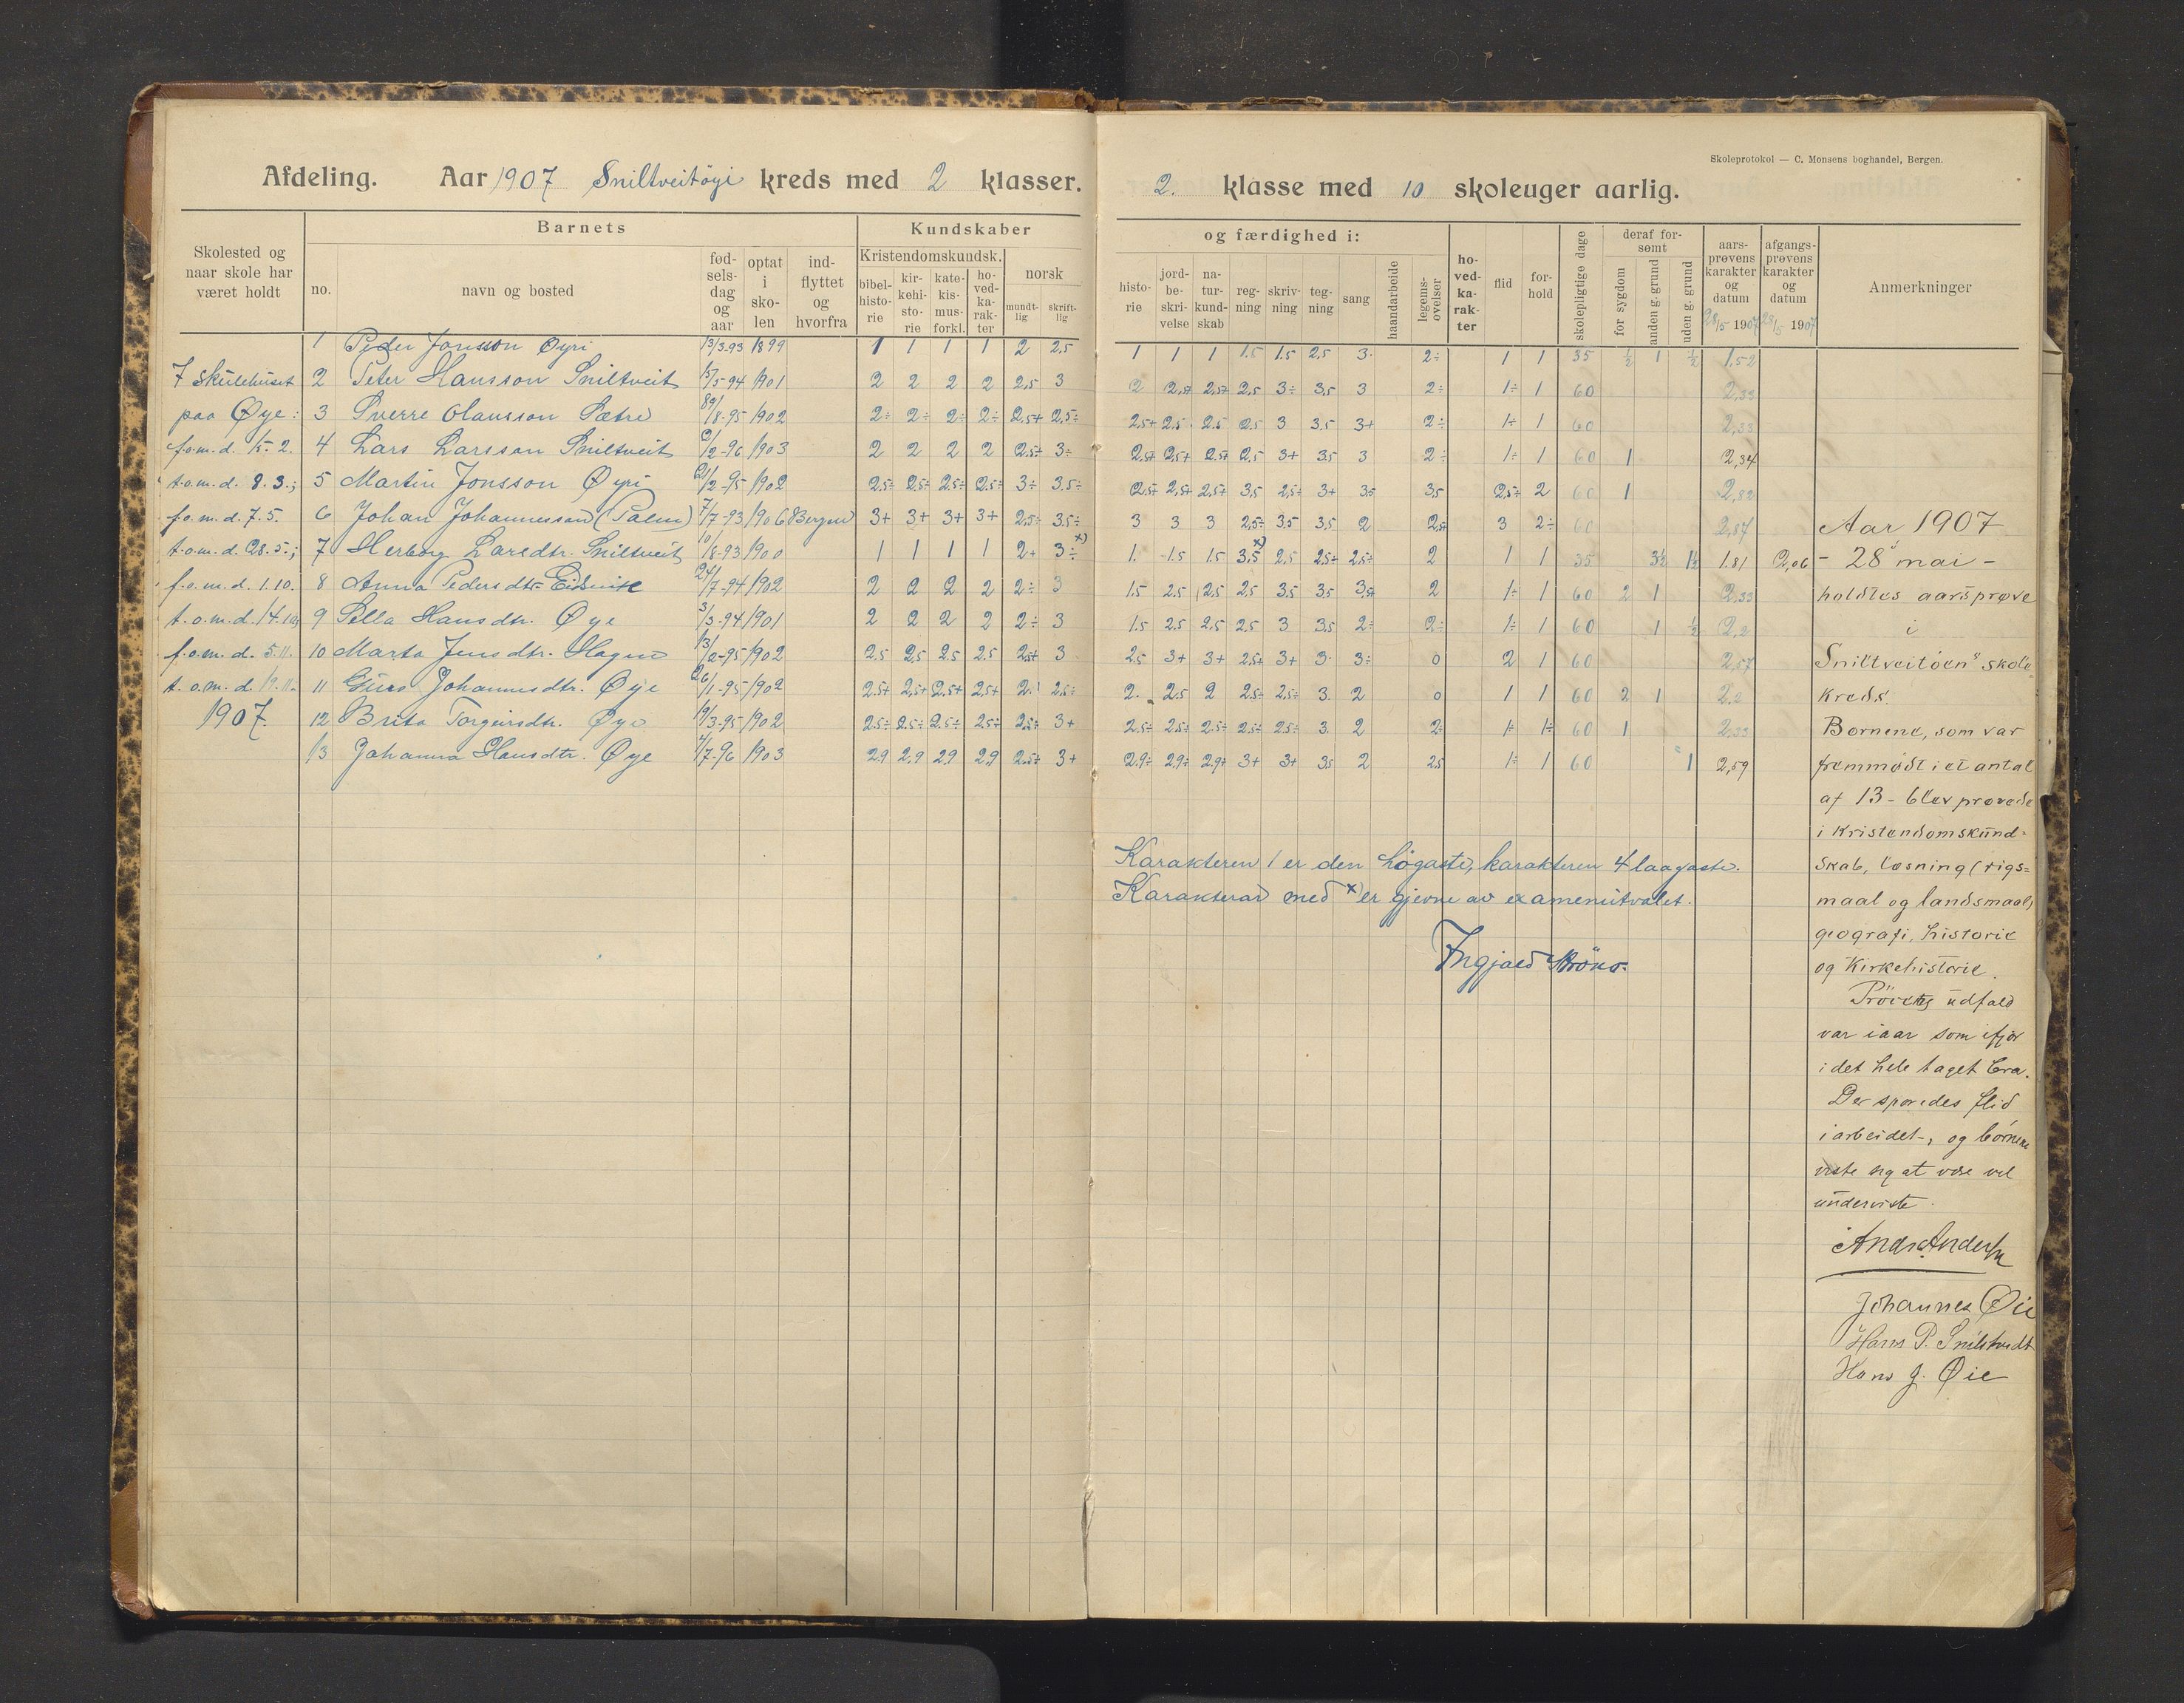 Skoleprotokol — C. Monsens boghandel, Bergen.
Afdeling. Aar 1907 Sniltveitöyi kreds med 2 klasser. 2. klasse med 10 skoleuger aarlig.
Skolested og naar skole har været holdt
Barnets
no.
navn og bosted
fød- sels- dag og aar
optat i sko- len
ind- flyttet og hvorfra
Kundskaber og færdighed i:
Kristendomskundsk.
bibel- histo- rie
kir- kehi- sto- rie
kate- kis- mus- forkl.
ho- ved- ka- rak- ter
norsk
mundt- lig
skrift- lig
histo- rie
jord- be- skri- velse
na- tur- kund- skab
reg- ning
skriv- ning
teg- ning
sang
haandarbeide
legems- øvelser
ho- ved- ka- rak- ter
flid
for- hold
skolepligtige dage
deraf for- sømt
for sygdom
anden g. grund
uden g. grund
aars- prøvens karakter og datum 28/5 1907
afgangs- prøvens karakter og datum 28/5 1907
Anmerkninger
1 Peder Jonsson Øyri 13/3.93 1899 1 1 1 1 2 2,5 1 1 1 1.5 1.5 2,5 3. 2÷ 1 1 35 ½ 1 ½ 1.52
I skulehuset 2 Peter Hansson Sniltveit 15/5-94 1901 2 2 2 2 2,5 3 2 2,5+ 2,5+ 2,5 3÷ 3,5 3 2÷ 1÷ 1 60 2,33
paa Øye: 3 Sverre Olansson Sætre /8-95 1902 2÷ 2÷ 2÷ 2÷ 2,5+ 2,5÷ 2,5+ 2,5 2,5 2,5 3 3,5 3+ 2÷ 1÷ 1 60 2,33
f.o.m.d. 15.2. 4 Lars Larsson Sniltveit 2/2-96 1903 2 2 2 2 2,5+ 3÷ 2,5+ 2,5+ 2,5+ 2,5 3+ 3,5 3 2÷ 1÷ 1 60 1 2,34
t.o.m.d. 8.3.; 5 Martin Jonsson Øyri 21/2-95 1902 2,5÷ 2,5÷ 2,5÷ 2,5÷ 3÷ 3.5÷ 2,5+ 2,5+ 2,5+ 3,5 2,5÷ 3+ 3,5 3,5 2,5÷ 2 60 1 2,82
f.o.m.d. 7.5. 6 Johan Johannesson (Palm) 7/7-93 1906 Bergen 3+ 3+ 3+ 3+ 2,5÷ 3,5÷ 3 3 3 2,5÷ 3,5 3,5 2 2,5+ 3 2÷ 60 2,87
t.o.m.d. 28.5.; 7 Herborg Larsdtr. Sniltveit 10/8-93 1900 1 1 1 1 2+ 3÷ x) 1. 1.5 1.5 3,5 x) 2,5 2,5+ 2,5÷ 2 1 1 35 3½ 1½ 1.81 2,06
f.o.m.d. 1.10. 8 Anna Pedersdtr. Eidsvik 24/7-94 1902 2 2 2 2 2÷ 3 1.5 2.5 2,5 2,5 3,5 3,5 3,5+ 2 1÷ 1 60 2 1 2,33
t.o.m.d. 14.10; 9 Sella Hansdtr. Øye 3/3-94 1901 2 2 2 2 2÷ 3 1.5 2.5 2.5 2,5 3 3,5 2÷ 2÷ 1÷ 1 60 1 ½ 2,2
f.o.m.d. 5.11. 10 Marta Jensdtr. Hagen 13/2-95 1902 2.5 2,5 2.5 2.5 2,5+ 3 2.5 3+ 3+ 2,5+ 3+ 3. 3÷ 0 2 1 60 2,57
t.o.m.d. 19.11. 11 Guro Johannesdtr. Øye 26/1-95 1902 2,5+ 2,5+ 2,5+ 2,5+ 2. 2,5÷ 2. 2,5 2 2,5÷ 2,5÷ 3. 2 0 1 1 60 2 1 2.2
1907. 12 Brita Torgeirsdtr. Øye 19/3-95 1902 2.5÷ 2.5÷ 2.5÷ 2.5÷ 2.5÷ 3+ 2.5÷ 2.5÷ 2.5÷ 2.5÷ 2.5÷ 3. 2 2÷ 1÷ 1÷ 60 1 2,33
13 Johanna Hansdtr. Øye 4/7-96 1903 2.9 2,9 2.9 2,9 2.5+ 3+ 2.9÷ 2,9÷ 2,9+ 3+ 3+ 3,5 2 2,5 1÷ 1 60 1 2,59
Karakteren 1 er den høgaste, karakteren 4 laagaste.
Karakterar med x) er gjevne av examenutvalet.
Ingjald
Aar 1907
– 28 mai –
holdtes aarsprøve
i
Sniltveitøens skole
kreds.
Børnene, som var
fremmødt i et antal
af 13 – blev prøvede
i Kristendomskund-
skab, læsning (rigs=
maal og landsmaal)
geografi, historie
og Kirkehistorie.
Prövens udfald
var iaar som ifjor
i det hele taget bra.
Der sporedes flid
i arbeidet, og börnene
viste sig at være vel
underviste.
Johannes Øie
Hans P. Sniltveidt
Hans J. Øie